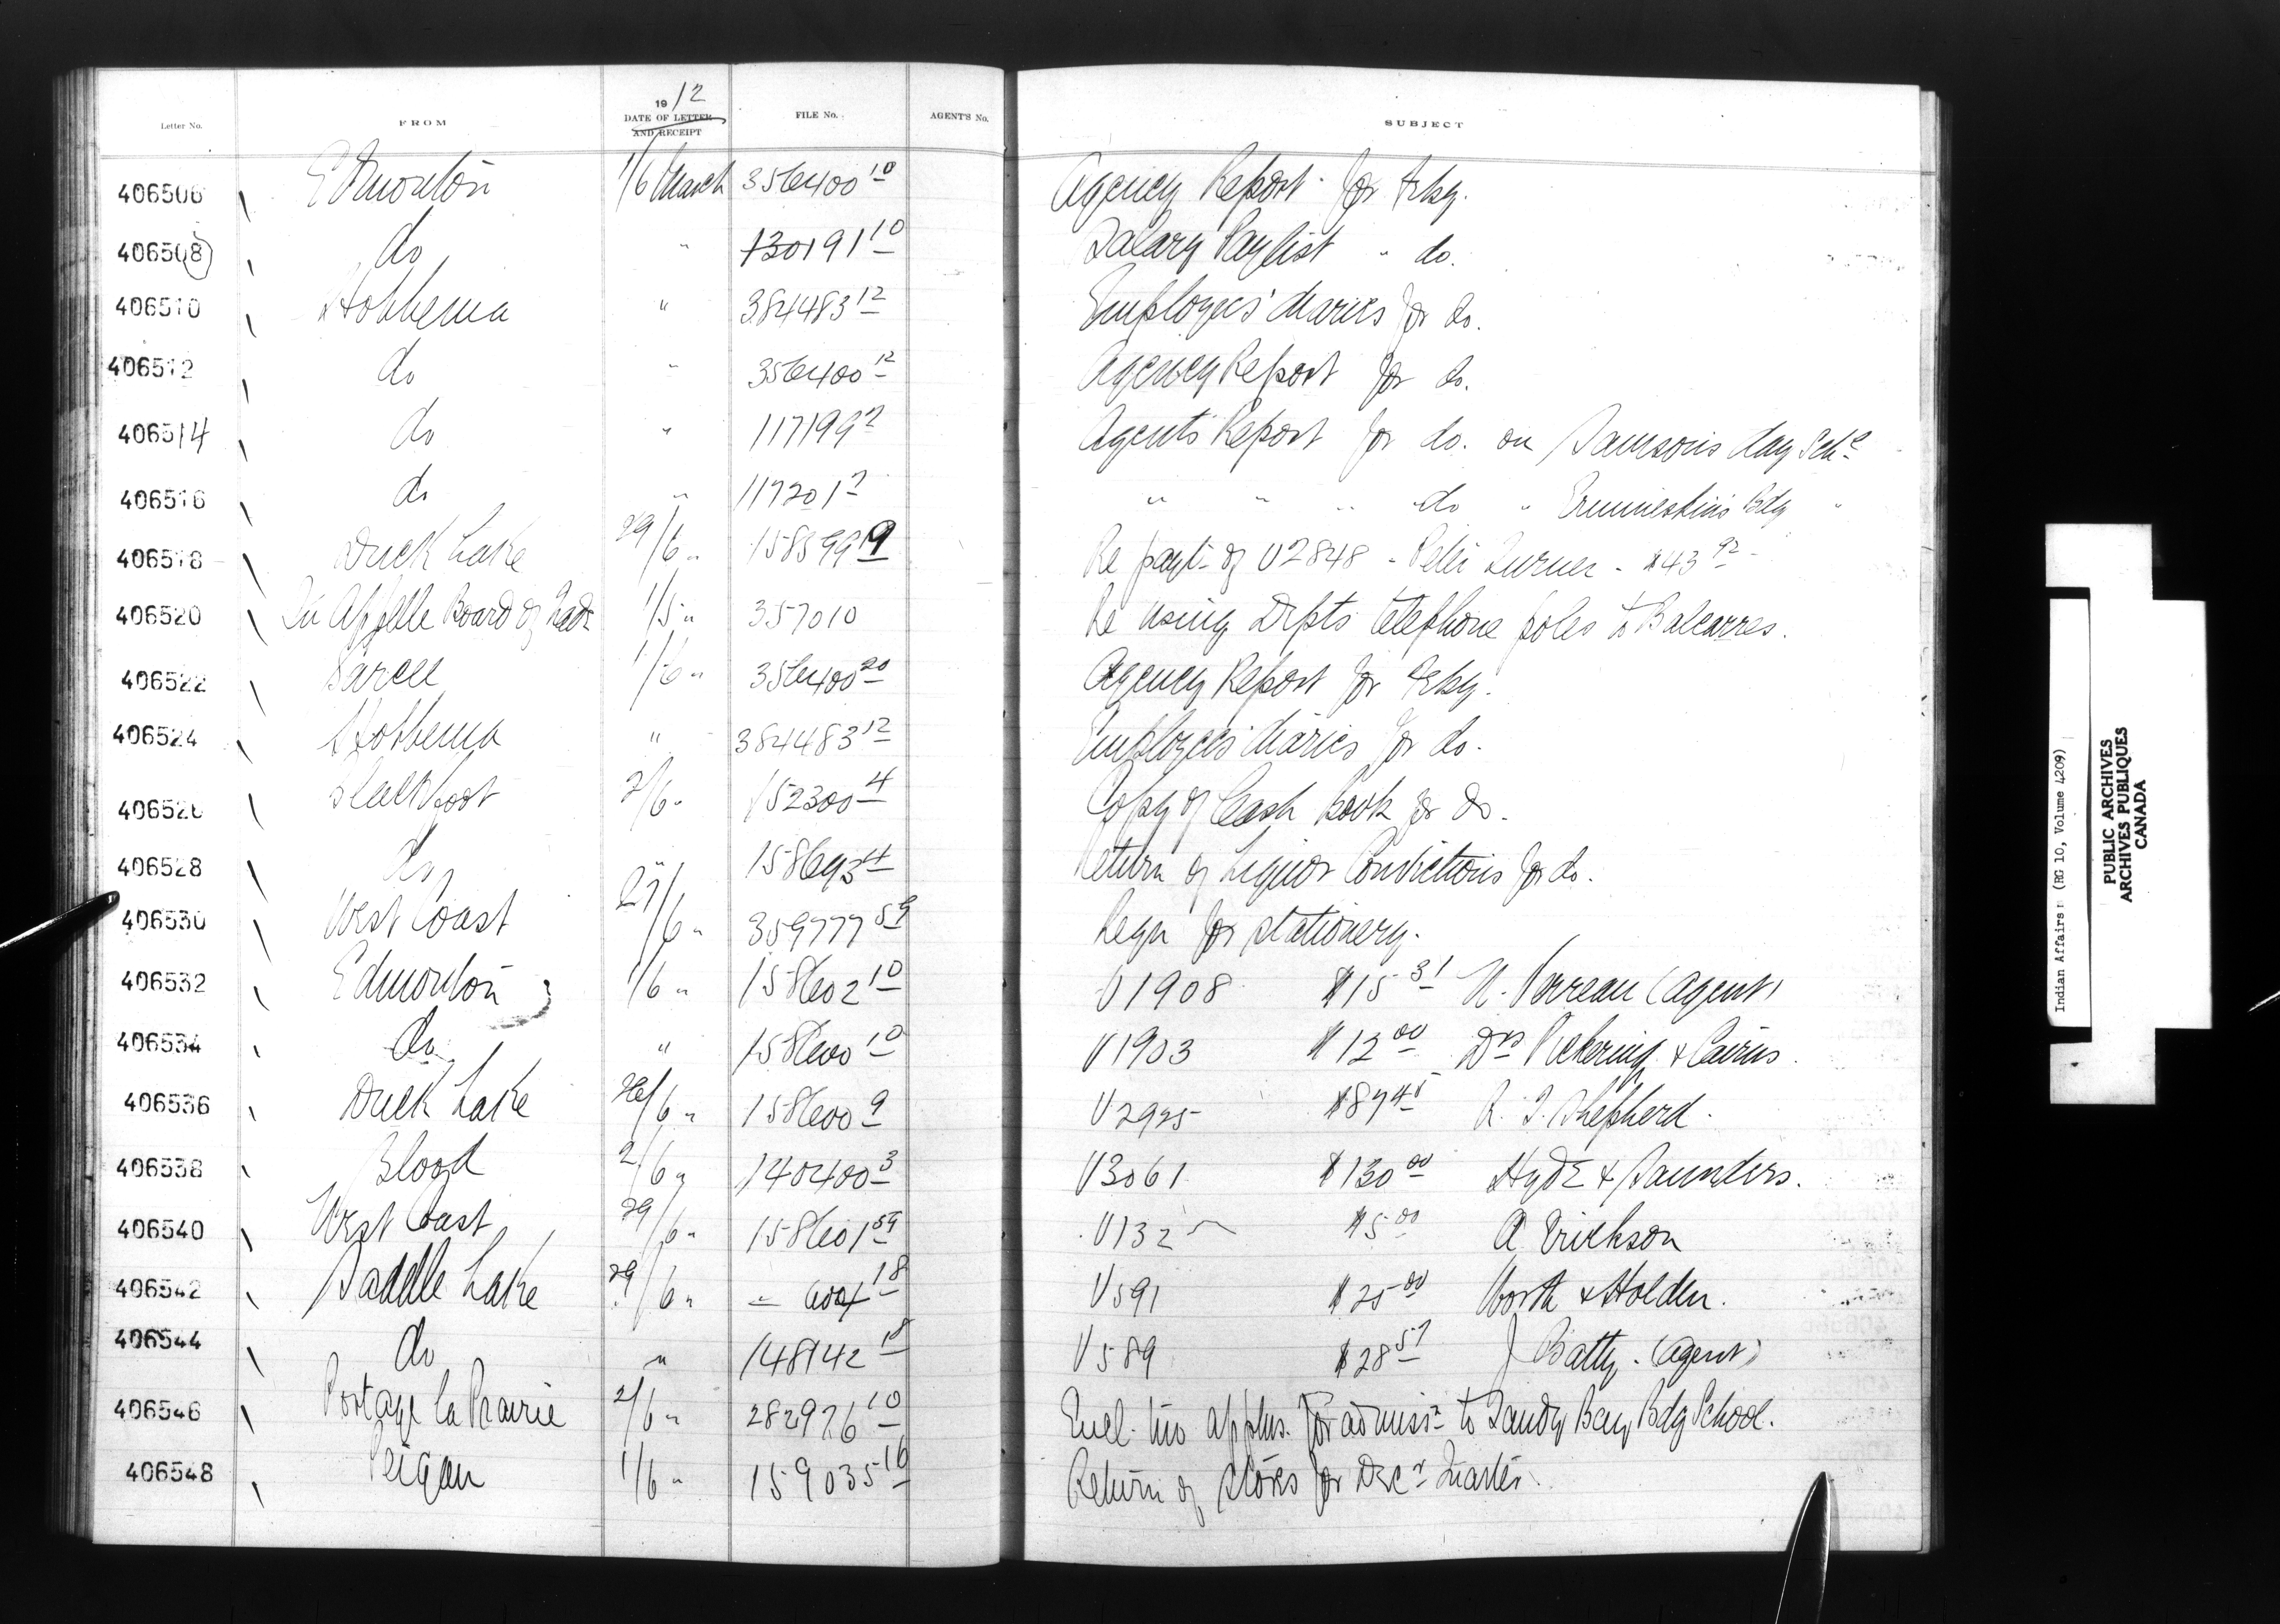 19 12
Letter No. FROM DATE OF LETTER AND RECEIPT FILE No. AGENT'S No. SUBJECT
406506 Edmonton 1/6 March 356400 10 Agency Report for Feby.
406508 do " 130191 10 Salary Paylist " do.
406510 Hobbema " 384483 12 Employees' diaries for do.
406512 do " 356400 12 Agency Report for do.
406514 do " 117199 2 Agents Report for do. on Samson's day Schl
406516 do " 117201 2 " " " do " Ermineskins Bdg "
406518 Duck Lake 29/6 " 158599 9 Re payt of V2848 - Peter Turner - $43 92
406520 Qu Appelle Board of Trade 1/5 " 357010 Re using Depts telephone poles to Balcarres.
406522 Sarcee 1/6 " 356400 20 Agency Report for Feby.
406524 Hobbema " 384483 12 Employees' diaries for do.
406526 Blackfoot 2/6 " 152300 4 Copy of Cash Book for do.
406528 do " 158693 4 Return of Liquor Convictions for do.
406530 West Coast 27/6 " 359777 59 Reqn for stationery.
406532 Edmonton 1/6 " 158602 10 V1908 $15 31 U. Verreau (Agent)
406534 do " 158600 10 V1903 $12 00 Drs Pickering & Cairns.
406536 Duck Lake 26/6 " 158600 9 V2925 $87 45 R. S. Shepherd.
406538 Blood 2/6 " 140400 3 V3061 $130 00 Hyde & Saunders.
406540 West Coast 29/6 " 158601 59 V132 $5 00 A Erickson
406542 Saddle Lake 29/6 " " 604 18 V591 $25 00 Worth & Holden.
406544 do " 148142 18 V589 $28 57 J Batty. (Agent)
406546 Portage la Prairie 2/6 " 282976 10 Encl. two applns. for admissn to Sandy Bay Bdg School.
406548 Peigan 1/6 " 159035 16 Return of stores for Decr Quarter.
Indian Affairs: (RG 10, Volume 4209)
PUBLIC ARCHIVES
ARCHIVES PUBLIQUES
CANADA